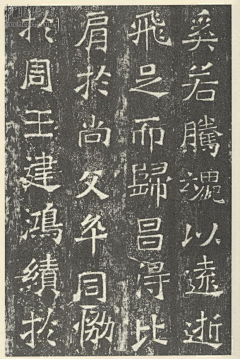 奚若騰魂以遠逝
飛足而歸呂得比
肩扵尚父卒同勳
扵周王建鴻績扵